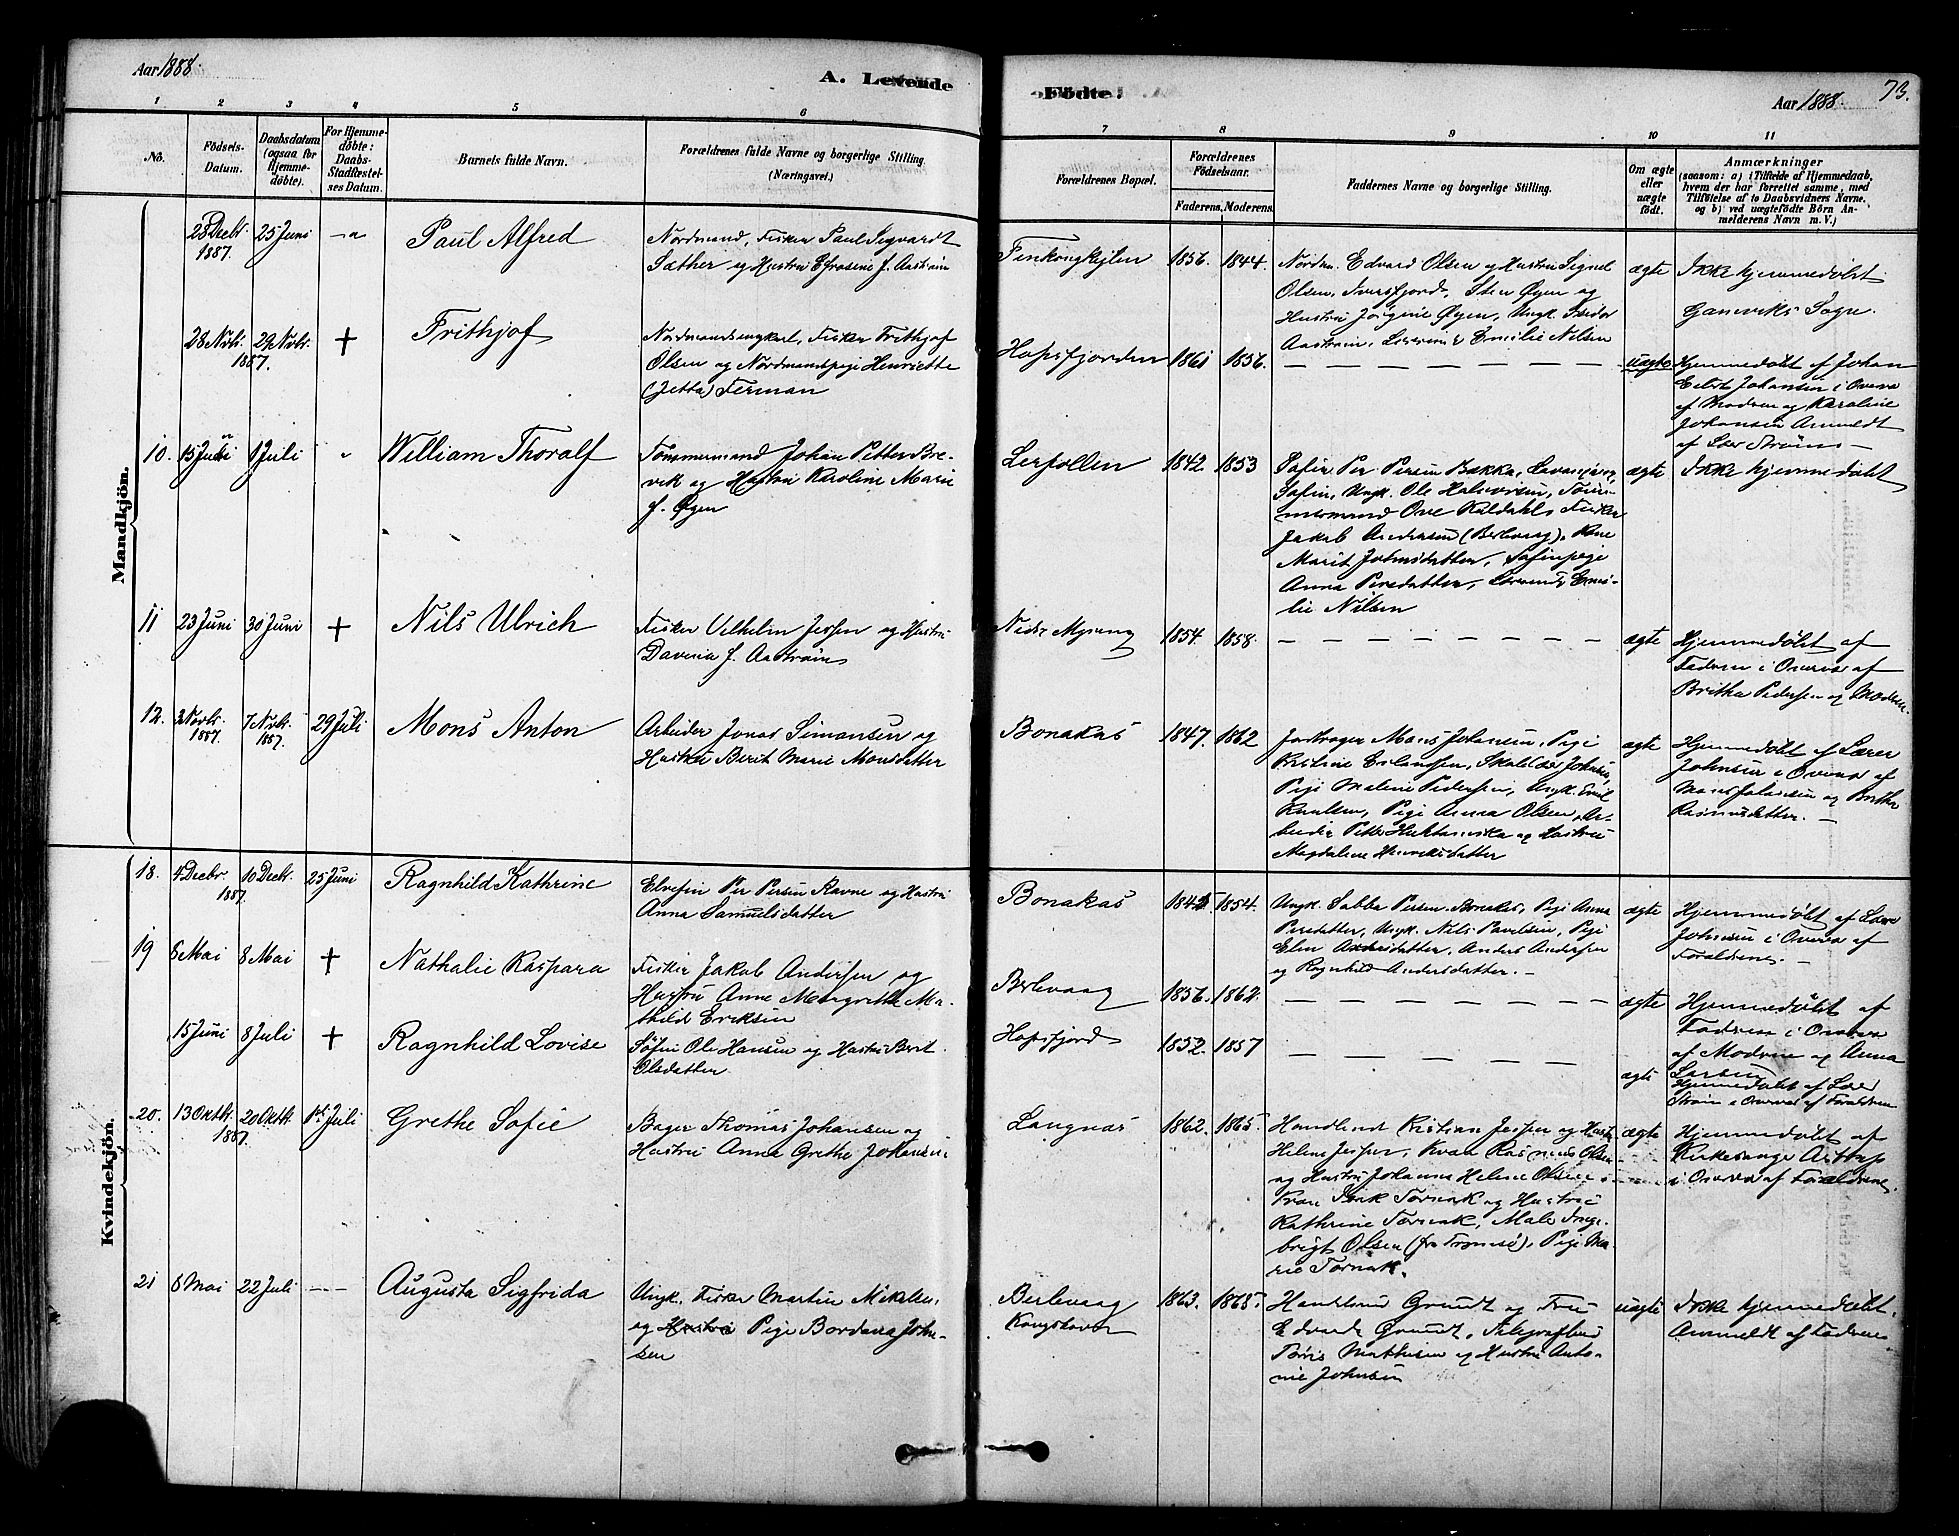 Aar 1888.
A. Levende
Födte.
Aar 1888.
73.
1 2 3 4 5 6 7 8 9 10 11
No.
Födsels-
Datum.
Daabsdatum
(ogsaa for
Hjemme-
döbte).
For Hjemme-
döbte:
Daabs-
Stadfæstel-
ses Datum.
Barnets fulde Navn.
Forældrenes fulde Navne og borgerlige Stilling.
(Næringsvei.)
Forældrenes Bopæl.
Forældrenes
Födselsaar.
Faderens. Moderens.
Faddernes Navne og borgerlige Stilling.
Om ægte
eller
uægte
födt.
Anmærkninger
(saasom: a) i Tilfælde af Hjemmedaab,
hvem der har forrettet samme, med
Tilföielse af to Daabsvidners Navne,
og b) ved uægtefödte Börn An-
melderens Navn m. V.)
Mandkjön.
28 Decbr.
1887.
25 Juni
Paul Alfred
Nordmand, Fisker Paul Sigvardt
Sæther og Hustru Efrosine f. Aastrøm
Finkongkeilen
1856. 1844.
Nordm. Edvard Olsen og Hustru Signel
Olsen, Iversfjord, Sten Øyen og
Hustru Jørgine Øyen, Ungk. Isidor
Aastrøm, Emilie Nilsen
ægte
Ikke hjemmedøbt
Gamviks Sogn.
28 Novbr. 29 Novbr.
1887.
+
Frithjof
Nordmandsungkarl, Fisker Frithjof
Olsen og Nordmandspige Henriette
(Jetta) Ferman
Hopsfjorden
1861 1856.
— — — — — — — —
uægte
Hjemmedøbt af Johan
Eilert Johansen i Overv.
af Modren og Karoline
Johansen Anmeldt
af Lær Strøm —
10. 15 Juni 1 Juli
William Thoralf
Tømmermand Johan Petter Bre-
vik og Hustru Karoline Marie
f. Øyen
Leirpollen
1842. 1853
Søfin Per Persen Bakka,
Søfin, Ungk. Ole Halvorsen, Tøm-
mermand Ove Kaldahl, Fisker
Jakob Andersen (Berlevaag), Kone
Marit Johnsdatter, Søfinpige
Anna Persdatter, Emi-
lie Nilsen
ægte
Ikke hjemmedøbt
11 23 Juni 30 Juni +
Nils Ulrich
Fisker Vilhelm Jessen og Hustru
Davida f. Aastrøm
1854. 1858.
— — — — — — — —
ægte
Hjemmedøbt af
Fadren i Overv. af
Britha Pedersen og Modren.
12. 2 Novbr. 7 Novbr. 29 Juli
1887. 1887.
Mons Anton
Arbeider Jonas Simonsen og
Hustru Berit Marie Monsdatter
Bonakas
1847. 1862
Mons Johansen, Pige
Kristine Erlandsen,
Pige Malene Pedersen, Ungk. Emil
Knutsen, Pige Anna Olsen, Ar-
beider Petter og Hustru
Magdalene Henriksdatter
ægte
Hjemmedøbt af Lærer
Johnsen i Overv. af
Mons Johansen og Britha
Rasmusdatter. —
Kvindekjön.
18. 4 Decbr 10 Decbr. 25 Juni
1887.
Ragnhild Kathrine
Elvefin Per Persen Ravne og Hustru
Anna Samuelsdatter
Bonakas
1845. 1854.
Ungk. Sabba Persen, Bonakas, Pige Anna
Persdatter, Ungk. Nils Pavelsen, Pige
Elen Andersdatter, Anders Andersen
og Ragnhild Andersdatter. —
ægte
Hjemmedøbt af Lærer
Johnsen i Overv. af
Forældrene. —
19 6 Mai 8 Mai +
Nathalie Kaspara
Fisker Jakob Andersen og
Hustru Anne Margrethe Ma-
thilde Eriksen
Berlevaag
1856. 1862.
— — — — — — — —
ægte
Hjemmedøbt af
Fadren i Overv.
af Modren og Anna
Larsen
15 Juni 8 Juli +
Ragnhild Lovise
Søfin Ole Hansen og Hustru Berit
Olsdatter
Hopsfjord
1852. 1857
— — — — — —
ægte
Hjemmedøbt af Lærer
Strøm i Overv. af Forældrene
20. 13 Oktbr. 20 Oktbr. 1st Juli
1887.
Grethe Sofie
Bager Thomas Johansen og
Hustru Anna Grethe Johansen
Langnæs
1862. 1865
Handlende Kristian Jessen og Hustru
Helene Jessen, Kvæn Rasmus Olsen
og Hustru Johanna Helene Olsen,
Kvæn Isak Tornæk og Hustru
Kathrine Tornæk, Maler Inge-
brigt Olsen (fra Tromsø), Pige Ma-
rie Tornæk.
ægte
Hjemmedøbt af
Kirkesanger Astrup
i Overv. af Forældrene.
21 8 Mai 22 Juli — —
Augusta Sigfrida
Ungk. Fisker Martin Mikkelsen
og Hustru Pige Bordana John-
sen
Berlevaag
Kongshavn
1863. 1865.
Handelsmd Grundt og Fru
Edvarda Grundt, Telegrafbud
Mathisen og Hustru Anto-
nie Johnsen
uægte
Ikke hjemmedøbt.
Anmeldt af Fadren